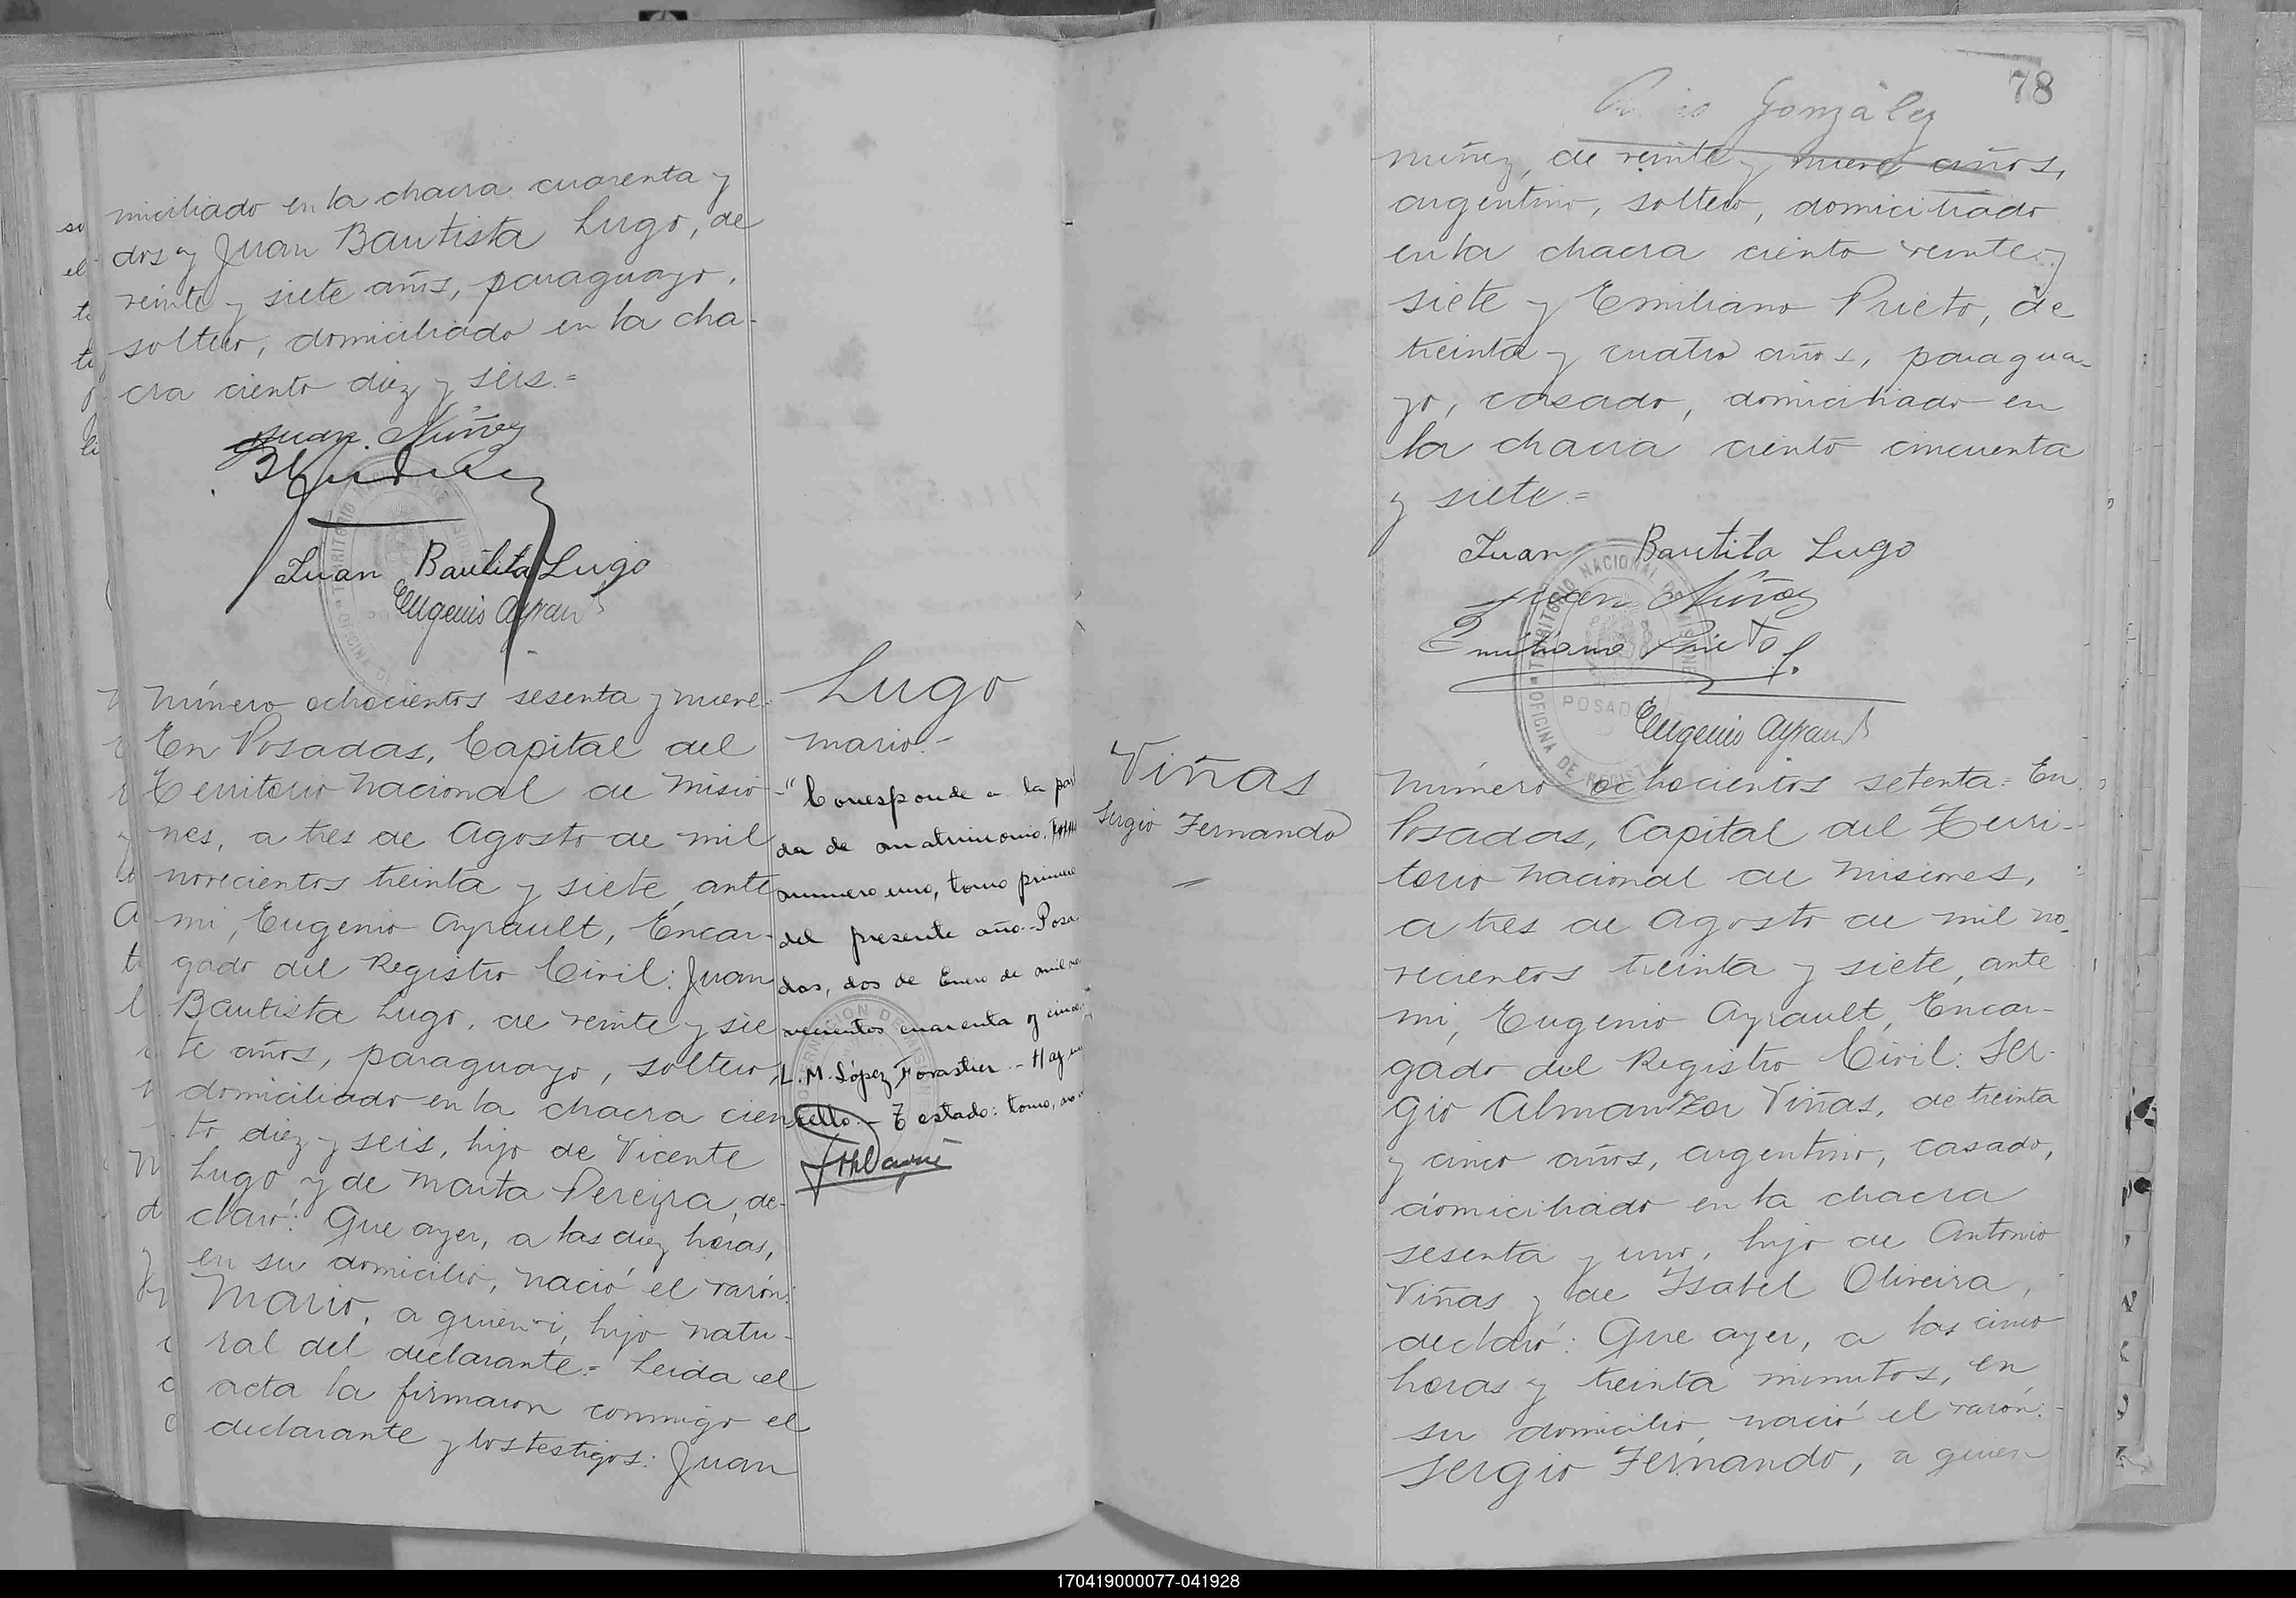 miciliado en la chacra cuarenta y
dos y Juan Bautista Lugo, de
veinte y siete años, paraguayo,
soltero, domiciliado en la cha-
cra ciento diez y seis.=
Juan Núñez
Juan Bautista Lugo
Eugenio Ayrault
Número ochocientos sesenta y nueve.
En Posadas, Capital del
Territorio Nacional de Misio-
nes, a tres de Agosto de mil
novecientos treinta y siete, ante
mi, Eugenio Ayrault, Encar-
gado del Registro Civil: Juan
Bautista Lugo, de veinte y sie
te años, paraguayo, soltero,
domiciliado en la chacra cien
to diez y seis, hijo de Vicente
Lugo y de Marta Pereira, de-
claró: Que ayer, a las diez horas,
en su domicilio, nació el varón:
Mario, a quien vi, hijo natu-
ral del declarante.= Leida el
acta la firmaron conmigo el
declarante y los testigos: Juan
Lugo
Mario.-
-"Corresponde a la par
da de matrimonio,
numero uno, tomo primero
del presente año.-Posa
das, dos de Enero de mil no
vecientos cuarenta y cinco.
L. M. López Forastier.- Hay un
sello.- Testado: tomo, no
78
González
Núñez, de veinte y nueve años,
argentino, soltero, domiciliado
en la chacra ciento veinte y
siete y Emiliano Prieto, de
treinta y cuatro años, paragua-
yo, casado, domiciliado en
la chacra ciento cincuenta
y siete.=
Juan Bautita Lugo
Juan Núñez
Emiliano Prieto
TERRITORIO NACIONAL DE MISIONES
OFICINA DE REGISTRO
POSADAS
Eugenio Ayrault
Viñas
Sergio Fernando
Número ochocientos setenta= En
Posadas, Capital del Terri-
torio Nacional de Misiones,
a tres de Agosto de mil no-
vecientos treinta y siete, ante
mi, Eugenio Ayrault, Encar-
gado del Registro Civil: Ser-
gio Almanzor Viñas, de treinta
y cinco años, argentino, casado,
domiciliado en la chacra
sesenta y uno, hijo de Antonio
Viñas y de Isabel Oliveira,
declaró: Que ayer, a las cinco
horas y treinta minutos, en
su domicilio, nació el varón:-
Sergio Fernando, a quien
170419000077-041928